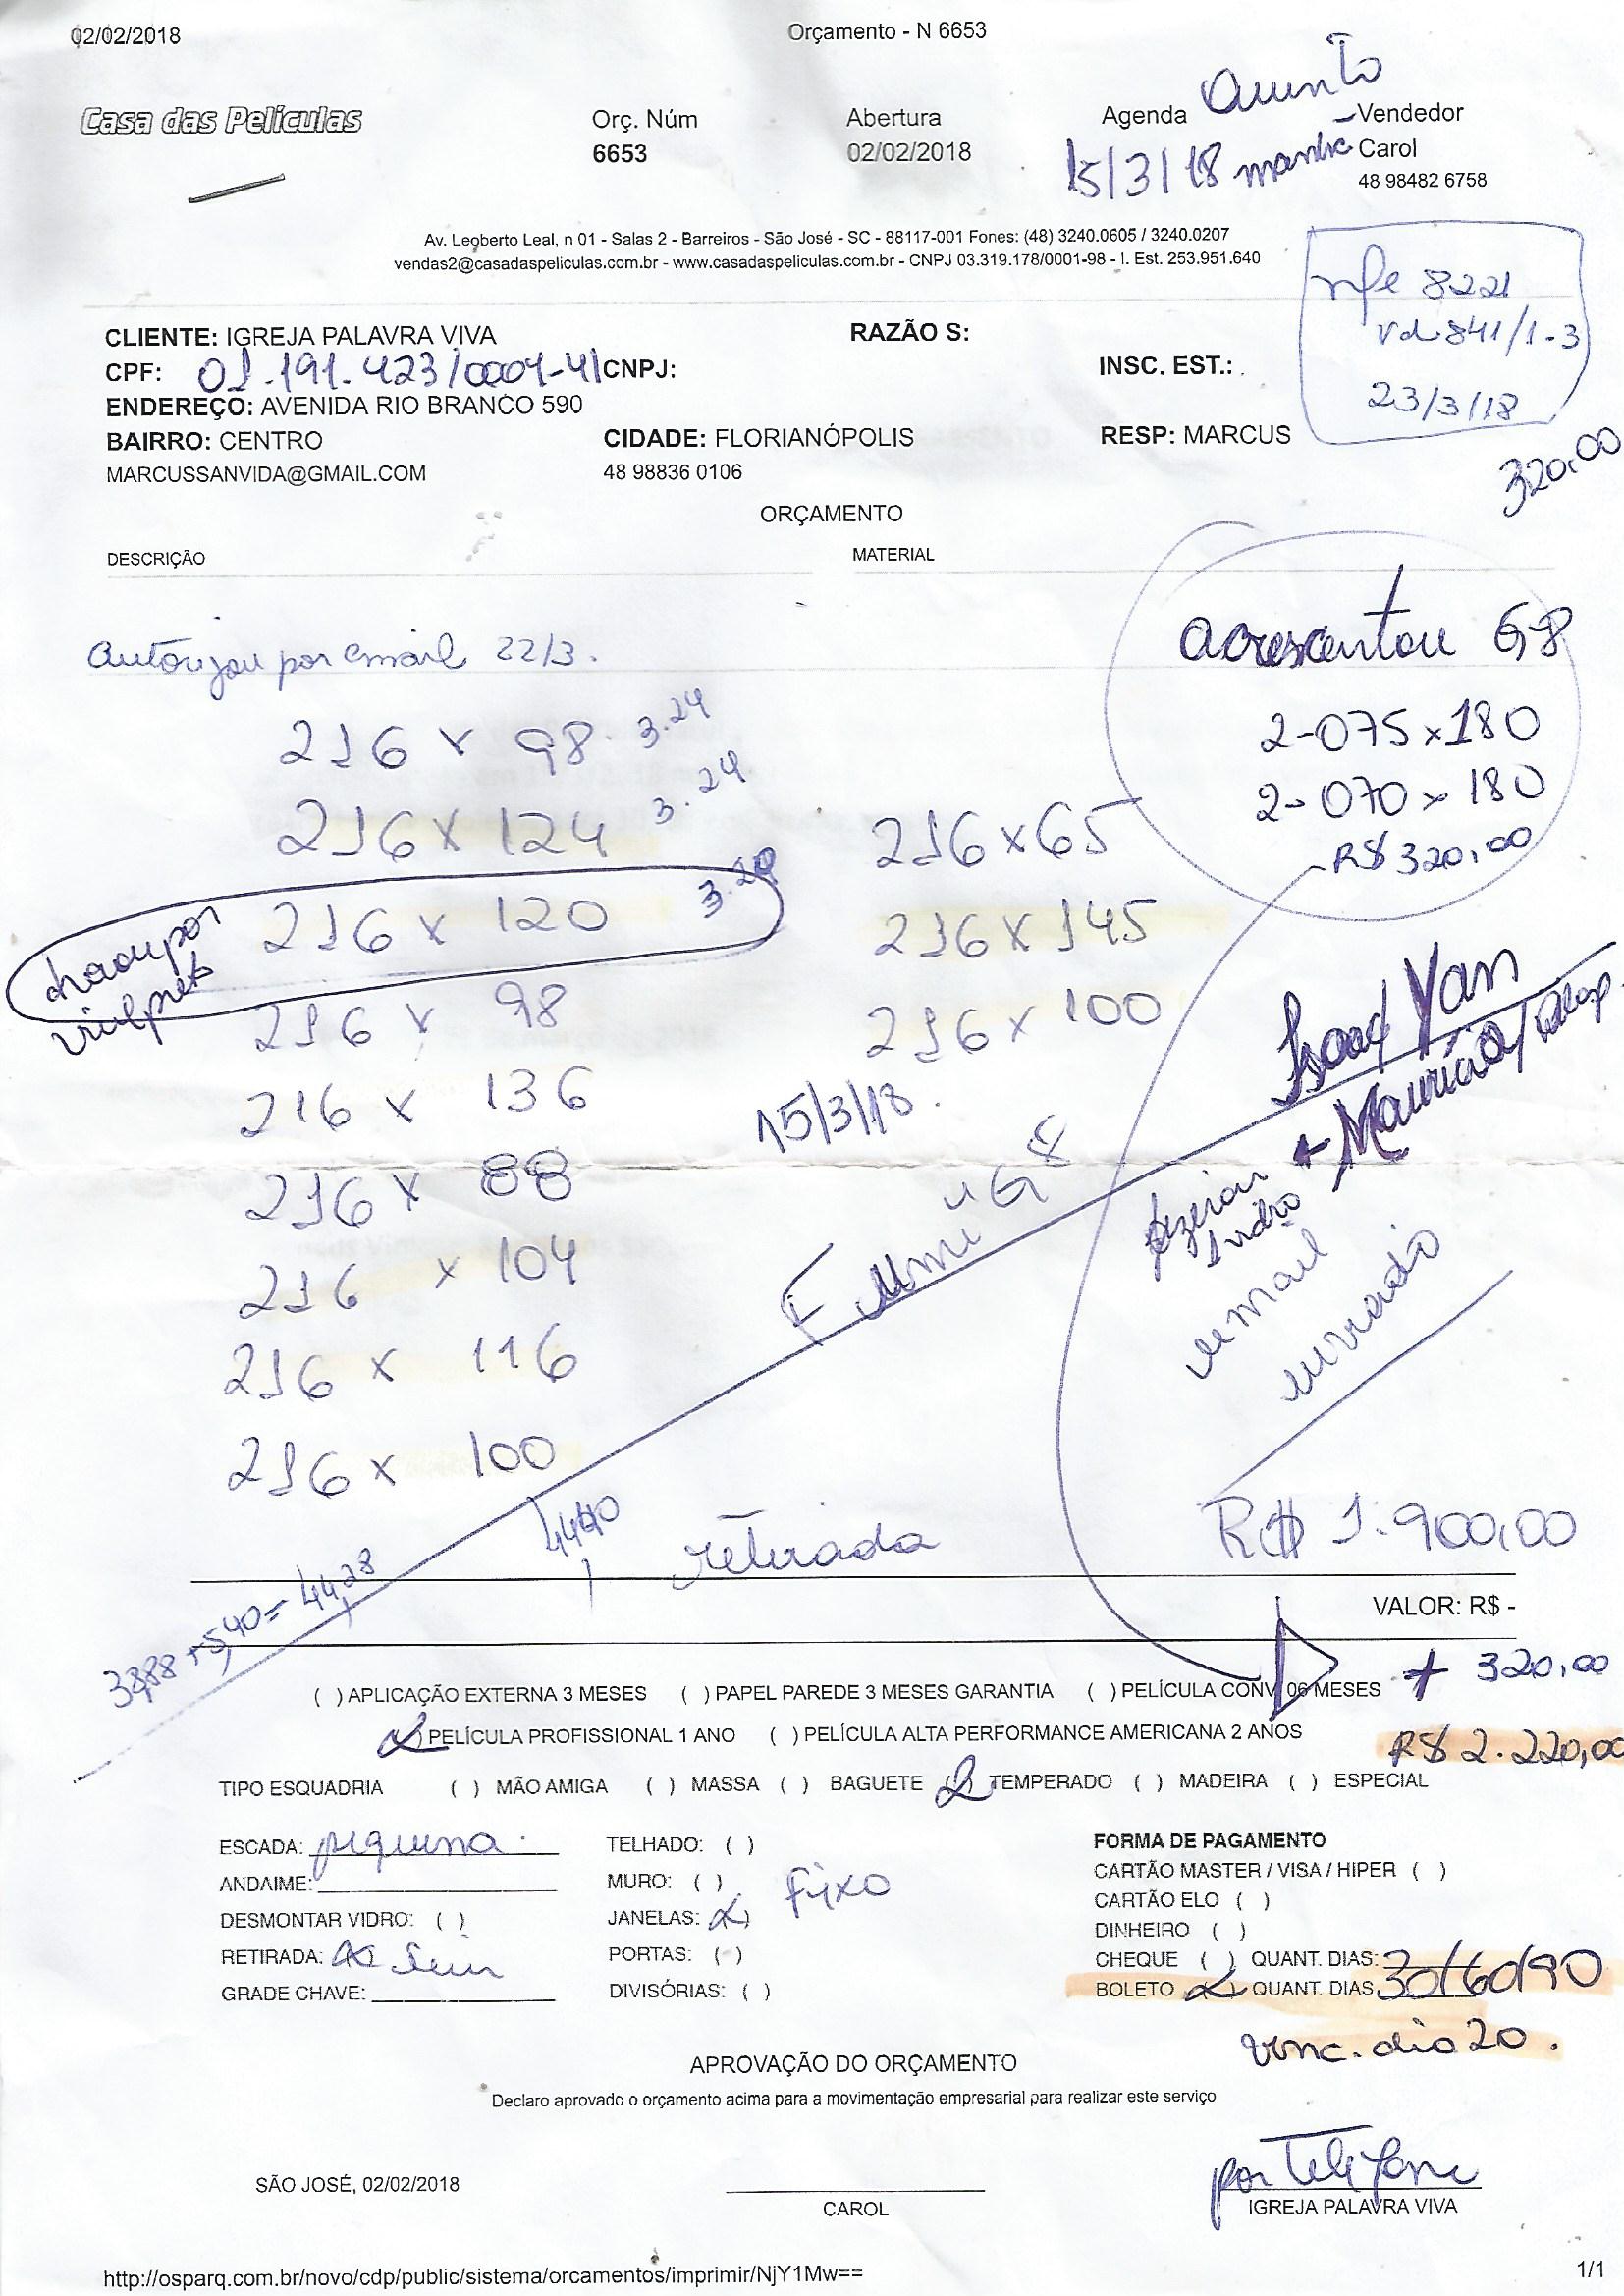 02/02/2018
Orçamento - N 6653
Casa das Películas
Orç. Núm
6653
Abertura
02/02/2018
Agenda
Quinto
15/3/18
Vendedor
Carol
48 98482 6758
Av. Leoberto Leal, n 01 - Salas 2 - Barreiros - São José - SC - 88117-001 Fones: (48) 3240.0605 / 3240.0207
vendas2@casadaspeliculas.com.br - www.casadaspeliculas.com.br - CNPJ 03.319.178/0001-98 - I. Est. 253.951.640
nfe 8221
Vd-841/1-3
23/3/18
320,00
CLIENTE: IGREJA PALAVRA VIVA
RAZÃO S:
CPF: 01.191.423/0001-41 CNPJ:
INSC. EST.: .
ENDEREÇO: AVENIDA RIO BRANCO 590
BAIRRO: CENTRO
CIDADE: FLORIANÓPOLIS
RESP: MARCUS
MARCUSSANVIDA@GMAIL.COM
48 98836 0106
ORÇAMENTO
DESCRIÇÃO
MATERIAL
Autorizou por email 22/3.
acrescentou G8
2-075x180
2-070x180
R$ 320,00
216 x 98 3.24
216 x 124 3.24
216 x 120
216 x 98
216 x 136
216 x 88
216 x 104
216 x 116
216 x 100
216 x 65
216 x 145
216 x 100
15/3/18.
G8
Yan
+ Maurício
1 vidro
email
enviado
38,88 + 5,40 = 44,28
retirada
R$ 1.900,00
VALOR: R$ -
+ 320,00
( ) APLICAÇÃO EXTERNA 3 MESES ( ) PAPEL PAREDE 3 MESES GARANTIA ( ) PELÍCULA CONV 06 MESES
(x) PELÍCULA PROFISSIONAL 1 ANO ( ) PELÍCULA ALTA PERFORMANCE AMERICANA 2 ANOS
R$ 2.220,00
TIPO ESQUADRIA ( ) MÃO AMIGA ( ) MASSA ( ) BAGUETE (x) TEMPERADO ( ) MADEIRA ( ) ESPECIAL
ESCADA: pequena
ANDAIME:
DESMONTAR VIDRO: ( )
RETIRADA: (x) Sem
GRADE CHAVE:
TELHADO: ( )
MURO: ( )
JANELAS: (x)
Fixo
PORTAS: ( )
DIVISÓRIAS: ( )
FORMA DE PAGAMENTO
CARTÃO MASTER / VISA / HIPER ( )
CARTÃO ELO ( )
DINHEIRO ( )
CHEQUE ( ) QUANT. DIAS:
BOLETO (x) QUANT. DIAS 30/60/90
venc. dia 20.
APROVAÇÃO DO ORÇAMENTO
Declaro aprovado o orçamento acima para a movimentação empresarial para realizar este serviço
SÃO JOSÉ, 02/02/2018
CAROL
por Telefone
IGREJA PALAVRA VIVA
http://osparq.com.br/novo/cdp/public/sistema/orcamentos/imprimir/NjY1Mw==
1/1